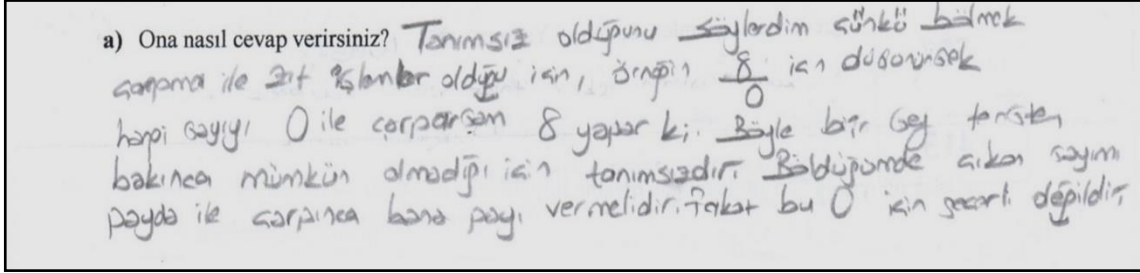 a) Ona nasıl cevap verirsiniz? Tanımsız olduğunu söylerdim çünkü bölmek
çarpma ile zıt işlemler olduğu için, örneğin 8/0 için düşünürsek
hangi sayıyı 0 ile çarparsam 8 yapar ki. Böyle bir şey tersten
bakınca mümkün olmadığı için tanımsızdır. Böldüğümde çıkan sayım
payda ile çarpınca bana payı vermelidir. Fakat bu 0 için geçerli değildir.